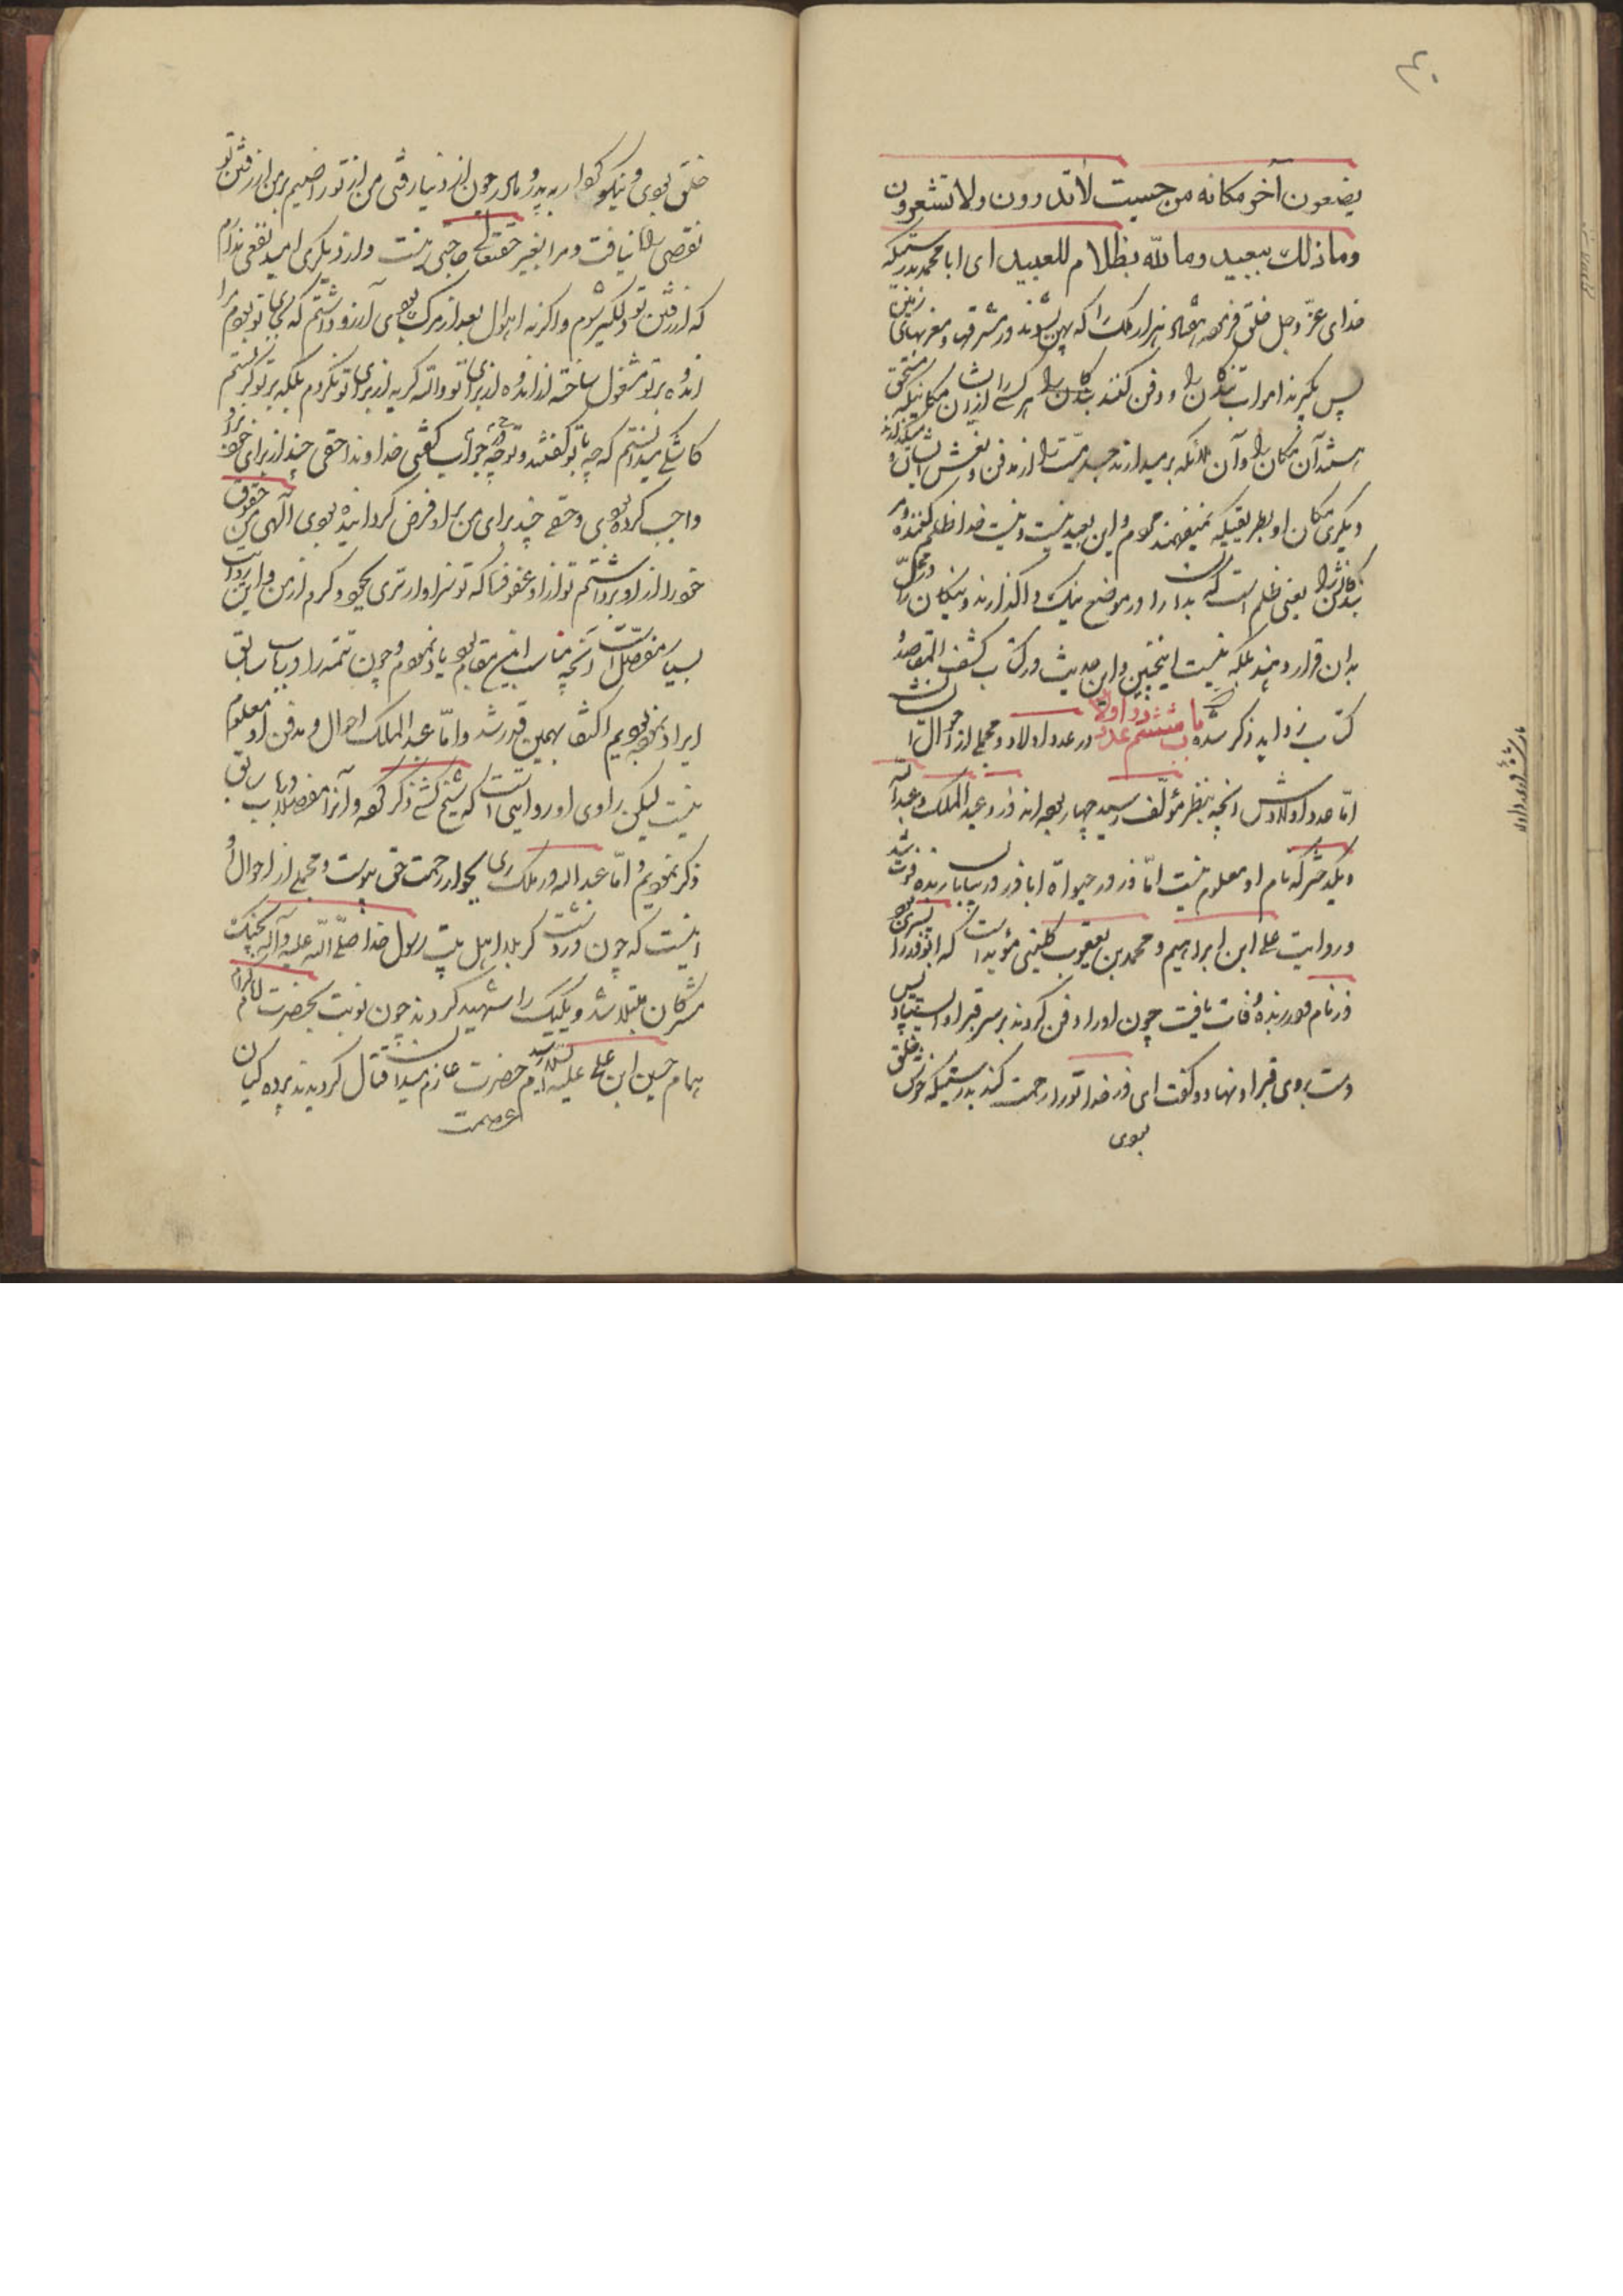 ۴۰
یضعون آخر مکانه من حیث لا تدرون ولا تشعرون
وما ذلك ببعید وما الله بظلام للعبید ای ابا محمد بدرستیکه
خدای عز وجل خلق فرموده هفتاد هزار ملک را که پهن شوند در مشرقها و مغربهای زمین
پس بگیرند اموات بندگان را و دفن کنند بندگان را هر کسی را از ایشان در مکانیکه مستحق
هستند آن مکان را و آن ملائکه برمیدارند جسد میّت را از مدفن و نعش ایشان و میگذارند
دیگری مکان او بطریقیکه نمیفهمند مردم و این بعید نیست و نیست خدا ظلم کننده مر
بندگانش را یعنی ظلم است که بدان را در موضع نیک واگذارند و نیکان را در محل
بدان قرار دهند بلکه نیست اینچنین و این حدیث در کتاب کشف المقاصد
کتاب زواید ذکر شده باب ششم در عدد اولاد و مجملی از احوال ایشان
امّا عدد اولادش انچه بنظر مؤلف رسید چهار بوده اند ذر و عبد الملک و عبد الله
و یکدختر که نام او معلوم نیست امّا ذر در حیوة اباذر در بیابان ربذه فوت شد
و روایت علی ابن ابراهیم و محمد بن یعقوب کلینی مؤید است که ابوذر را پسری بود
ذر نام در ربذه وفات یافت چون او را دفن کردند بر سر قبر او ایستاد پس
دست بروی قبر او نهاد و گفت ای ذر خدا تو را رحمت کند بدرستیکه خوش خلق
بودی
خلق بودی و نیکوکردار به پدر و مادر چون از دنیا رفتی من از تو راضیم بر من از رفتن تو
نقصی راه نیافت و مرا بغیر حقتعالی حاجتی نیست و از دیگری امید نفعی ندارم
که از رفتن تو دلگیر شوم و اگر نه اهوال بعد از مرگ بودی آرزو داشتم که بجای تو بودم مرا
اندوه بر تو مشغول ساخته از اندوه از برای تو والله گریه از برای تو نکردم بلکه بر تو گریستم
کاشکی میدانستم که چه با تو گفتند و تو چه جواب گفتی خداوندا حقی چند از برای خود بر او
واجب کرده بودی و حقی چند برای من بر او فرض گردانیده بودی آلهی من حقوق
خود را از او برداشتم تو از او عفو فرما که تو سزاوارتری بجود و کرم از من و این روایت
بسیار مفصل است آنچه مناسب این مقام بود یاد نمودم و چون تتمه را در باب سابق
ایراد نموده بودیم اکتفا بهمین قدر شد و امّا عبد الملک احوال و مدفن او معلوم
نیست لیکن راوی او روایتی است که شیخ کشی ذکر کرده و آنرا مفصلا در باب سابق
ذکر نمودیم و امّا عبد الله در ملک ری بجوار رحمت حق پیوست و مجملی از احوال او
اینست که چون در دشت کربلا اهل بیت رسول خدا صلی الله علیه وآله بجنگ
مشرکان مبتلا شد و یکیک را شهید کردند چون نوبت بحضرت امام
همام حسین ابن علی علیه السلام رسید حضرت عازم میدان قتال گردیدند پرده گیان
عصمت